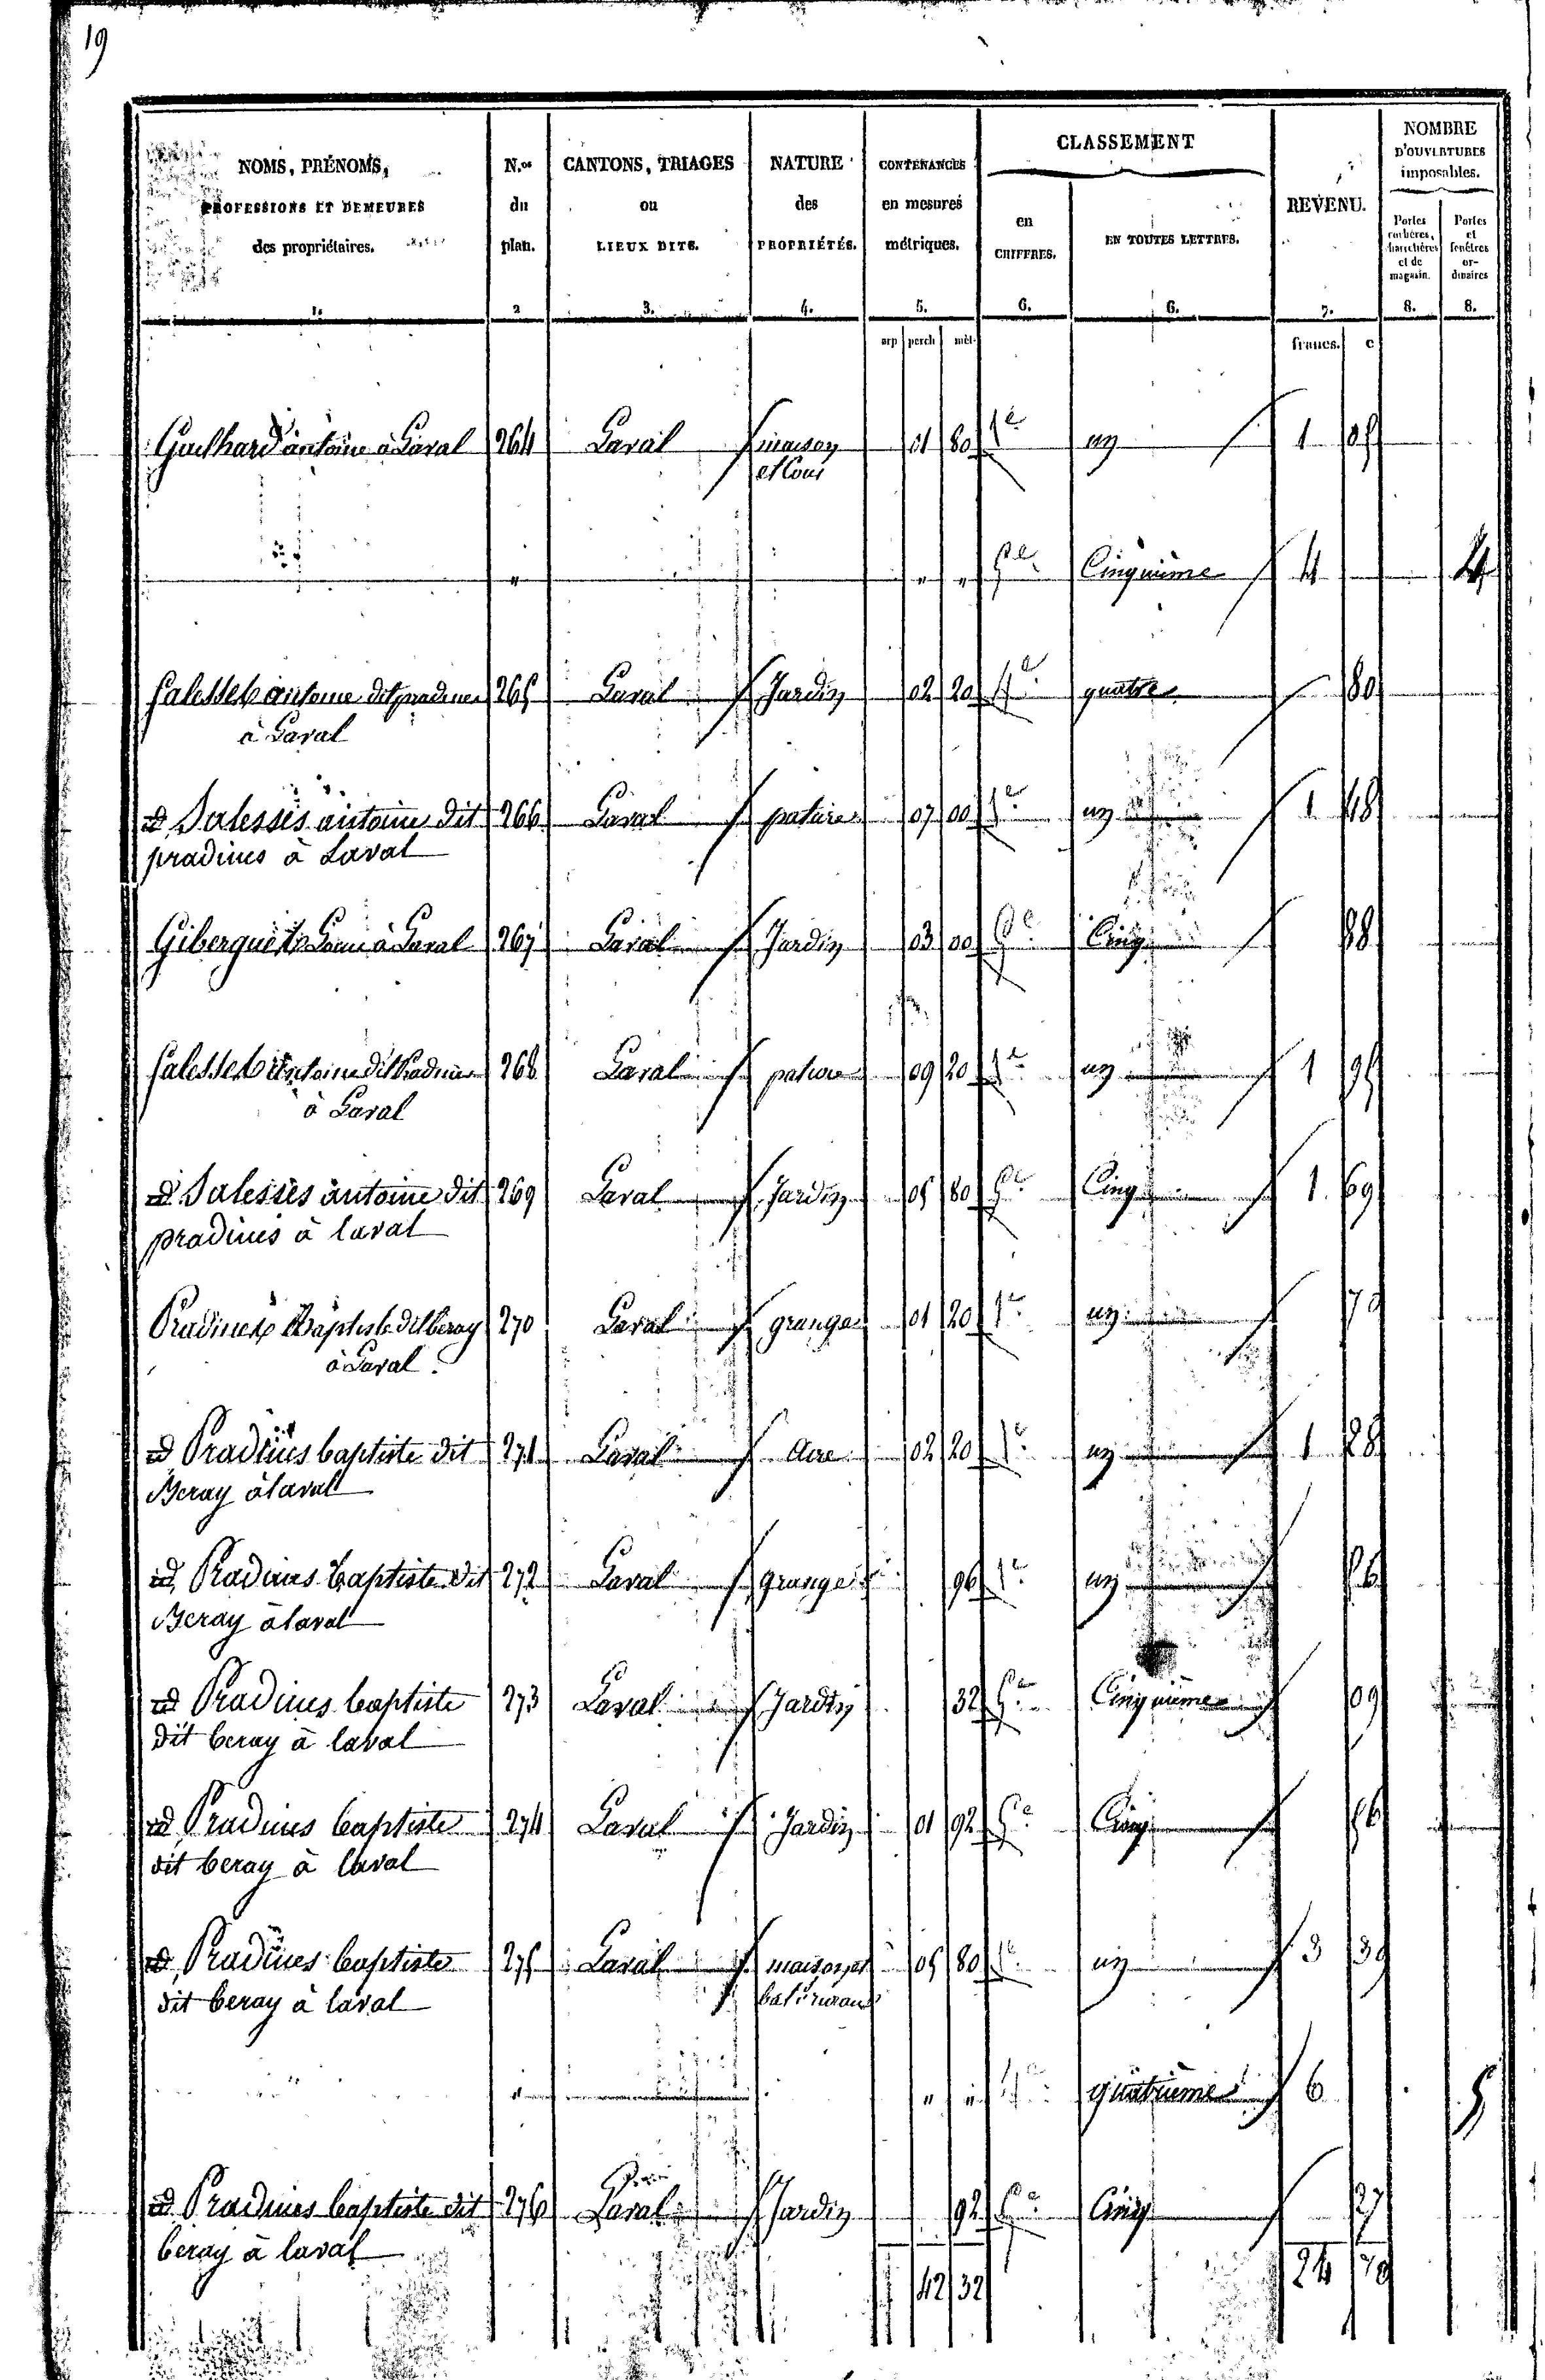 19
NOMS, PRÉNOMS, PROFESSIONS ET DEMEURES des propriétaires. N.os du plan. CANTONS, TRIAGES ou LIEUX DITS. NATURE des PROPRIÉTÉS. CONTENANCES en mesures métriques. CLASSEMENT en CHIFFRES. EN TOUTES LETTRES. REVENU. NOMBRE D'OUVERTURES imposables. Portes cochères, charretières et de magasin. Portes et fenêtres or-dinaires
1. 2 3. 4. 5. 6. 6. 7. 8. 8.
arp perch mèt. francs. c
Guilhard antoine à Laval 264 Laval maison 01 80 1e un 1 05
et Cour
" " " 5e Cinquième 4 4
Salesses antoine dit pradines 265 Laval Jardin 02 20 4e quatre 80
à Laval
id Salesses antoine dit 266 Laval pature 07 00 1e un 1 48
pradines à Laval
Giberguet à Laval 267 Laval Jardin 03 00 5e Cinq 88
Salesses Antoine dit Pradines 268 Laval pature 09 20 1e un 1 95
à Laval
id Salesses antoine dit 269 Laval Jardin 05 80 5e Cinq 1 69
pradines à laval
Pradines Baptiste dit beray 270 Laval grange 01 20 1e un 70
à Laval
id Pradines baptiste dit 271 Laval Aire 02 20 1e un 1 28
Beray à laval
id Pradines baptiste dit 272 Laval grange 96 1e un 56
Beray à laval
id Pradines baptiste 273 Laval Jardin 32 5e Cinquième 09
dit beray à laval
id Pradines baptiste 274 Laval Jardin 01 92 5e Cinq 56
dit beray à laval
id Pradines baptiste 275 Laval maison et 05 80 1e un 3 39
dit beray à laval bat. ruraux
" " " 4e quatrième 6 5
id Pradines baptiste dit 276 Laval Jardin 92 5e Cinq 27
beray à laval
42 32 24 70